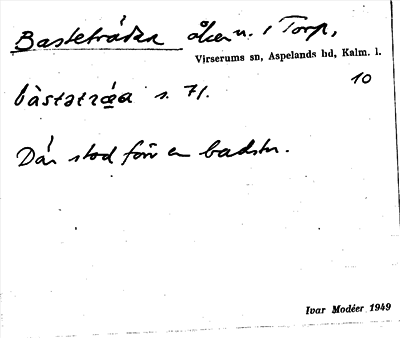 Basteträdan åkern. i Torp,
Virserums sn, Aspelands hd, Kalm. l.
10
bàstətrα s. 71.
Där stod förr en badstu.
Ivar Modéer 1949